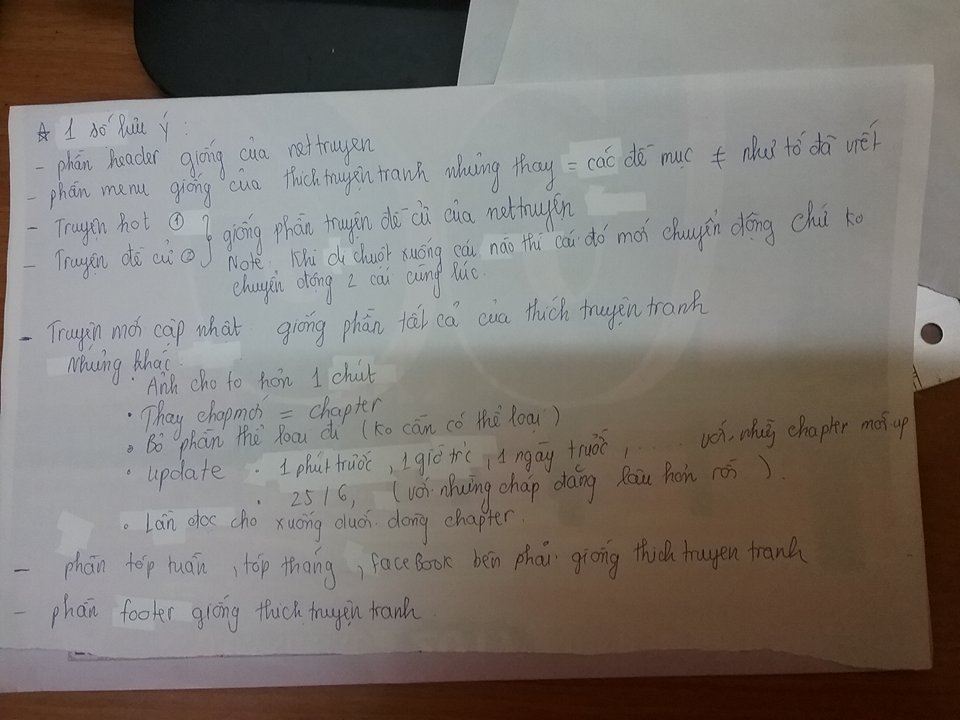 ☆ 1 số lưu ý :
- phần header giống của nettruyen
- phần menu giống của thichtruyentranh nhưng thay = các đề mục ≠ như tớ đã viết
- Truyện hot ①
- Truyện đề cử ②
} giống phần truyện đề cử của nettruyện
Note: Khi di chuột xuống cái nào thì cái đó mới chuyển động chứ ko
chuyển động 2 cái cùng lúc.
- Truyện mới cập nhật giống phần tất cả của thích truyện tranh
Nhưng khác:
• Ảnh cho to hơn 1 chút
• Thay chapmới = chapter
• Bỏ phần thể loại đi (ko cần có thể loại)
• update • 1 phút trước, 1 giờ trc, 1 ngày trước, ... với những chapter mới up
• 25/6, (với những chap đăng lâu hơn rồi).
• Lần đọc cho xuống dưới dòng chapter.
- phần tóp tuần, tóp tháng, faceBook bên phải giống thich truyen tranh
- phần footer giống thích truyện tranh